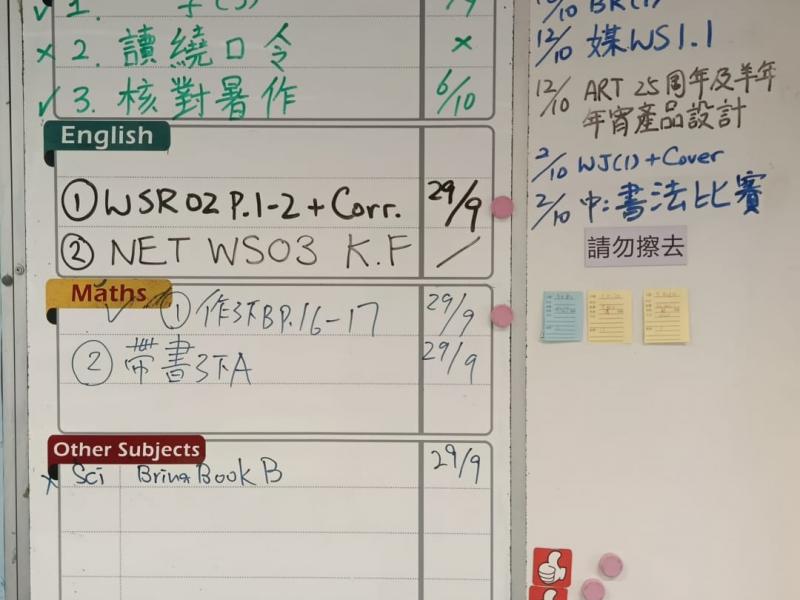 ✓ 1.
× 2. 讀繞口令 ×
✓ 3. 核對暑作 6/10
English
① WSR02 P.1-2 + Corr. 29/9
② NET WS03 K.F /
Maths
✓ ① 作3下B P.16-17 29/9
② 帶書3下A 29/9
Other Subjects
× Sci Bring Book B 29/9
BR(1)
12/10 媒WS1.1
12/10 ART 25周年及羊年
年宵產品設計
2/10 WJ(1)+Cover
2/10 中:書法比賽
請勿擦去